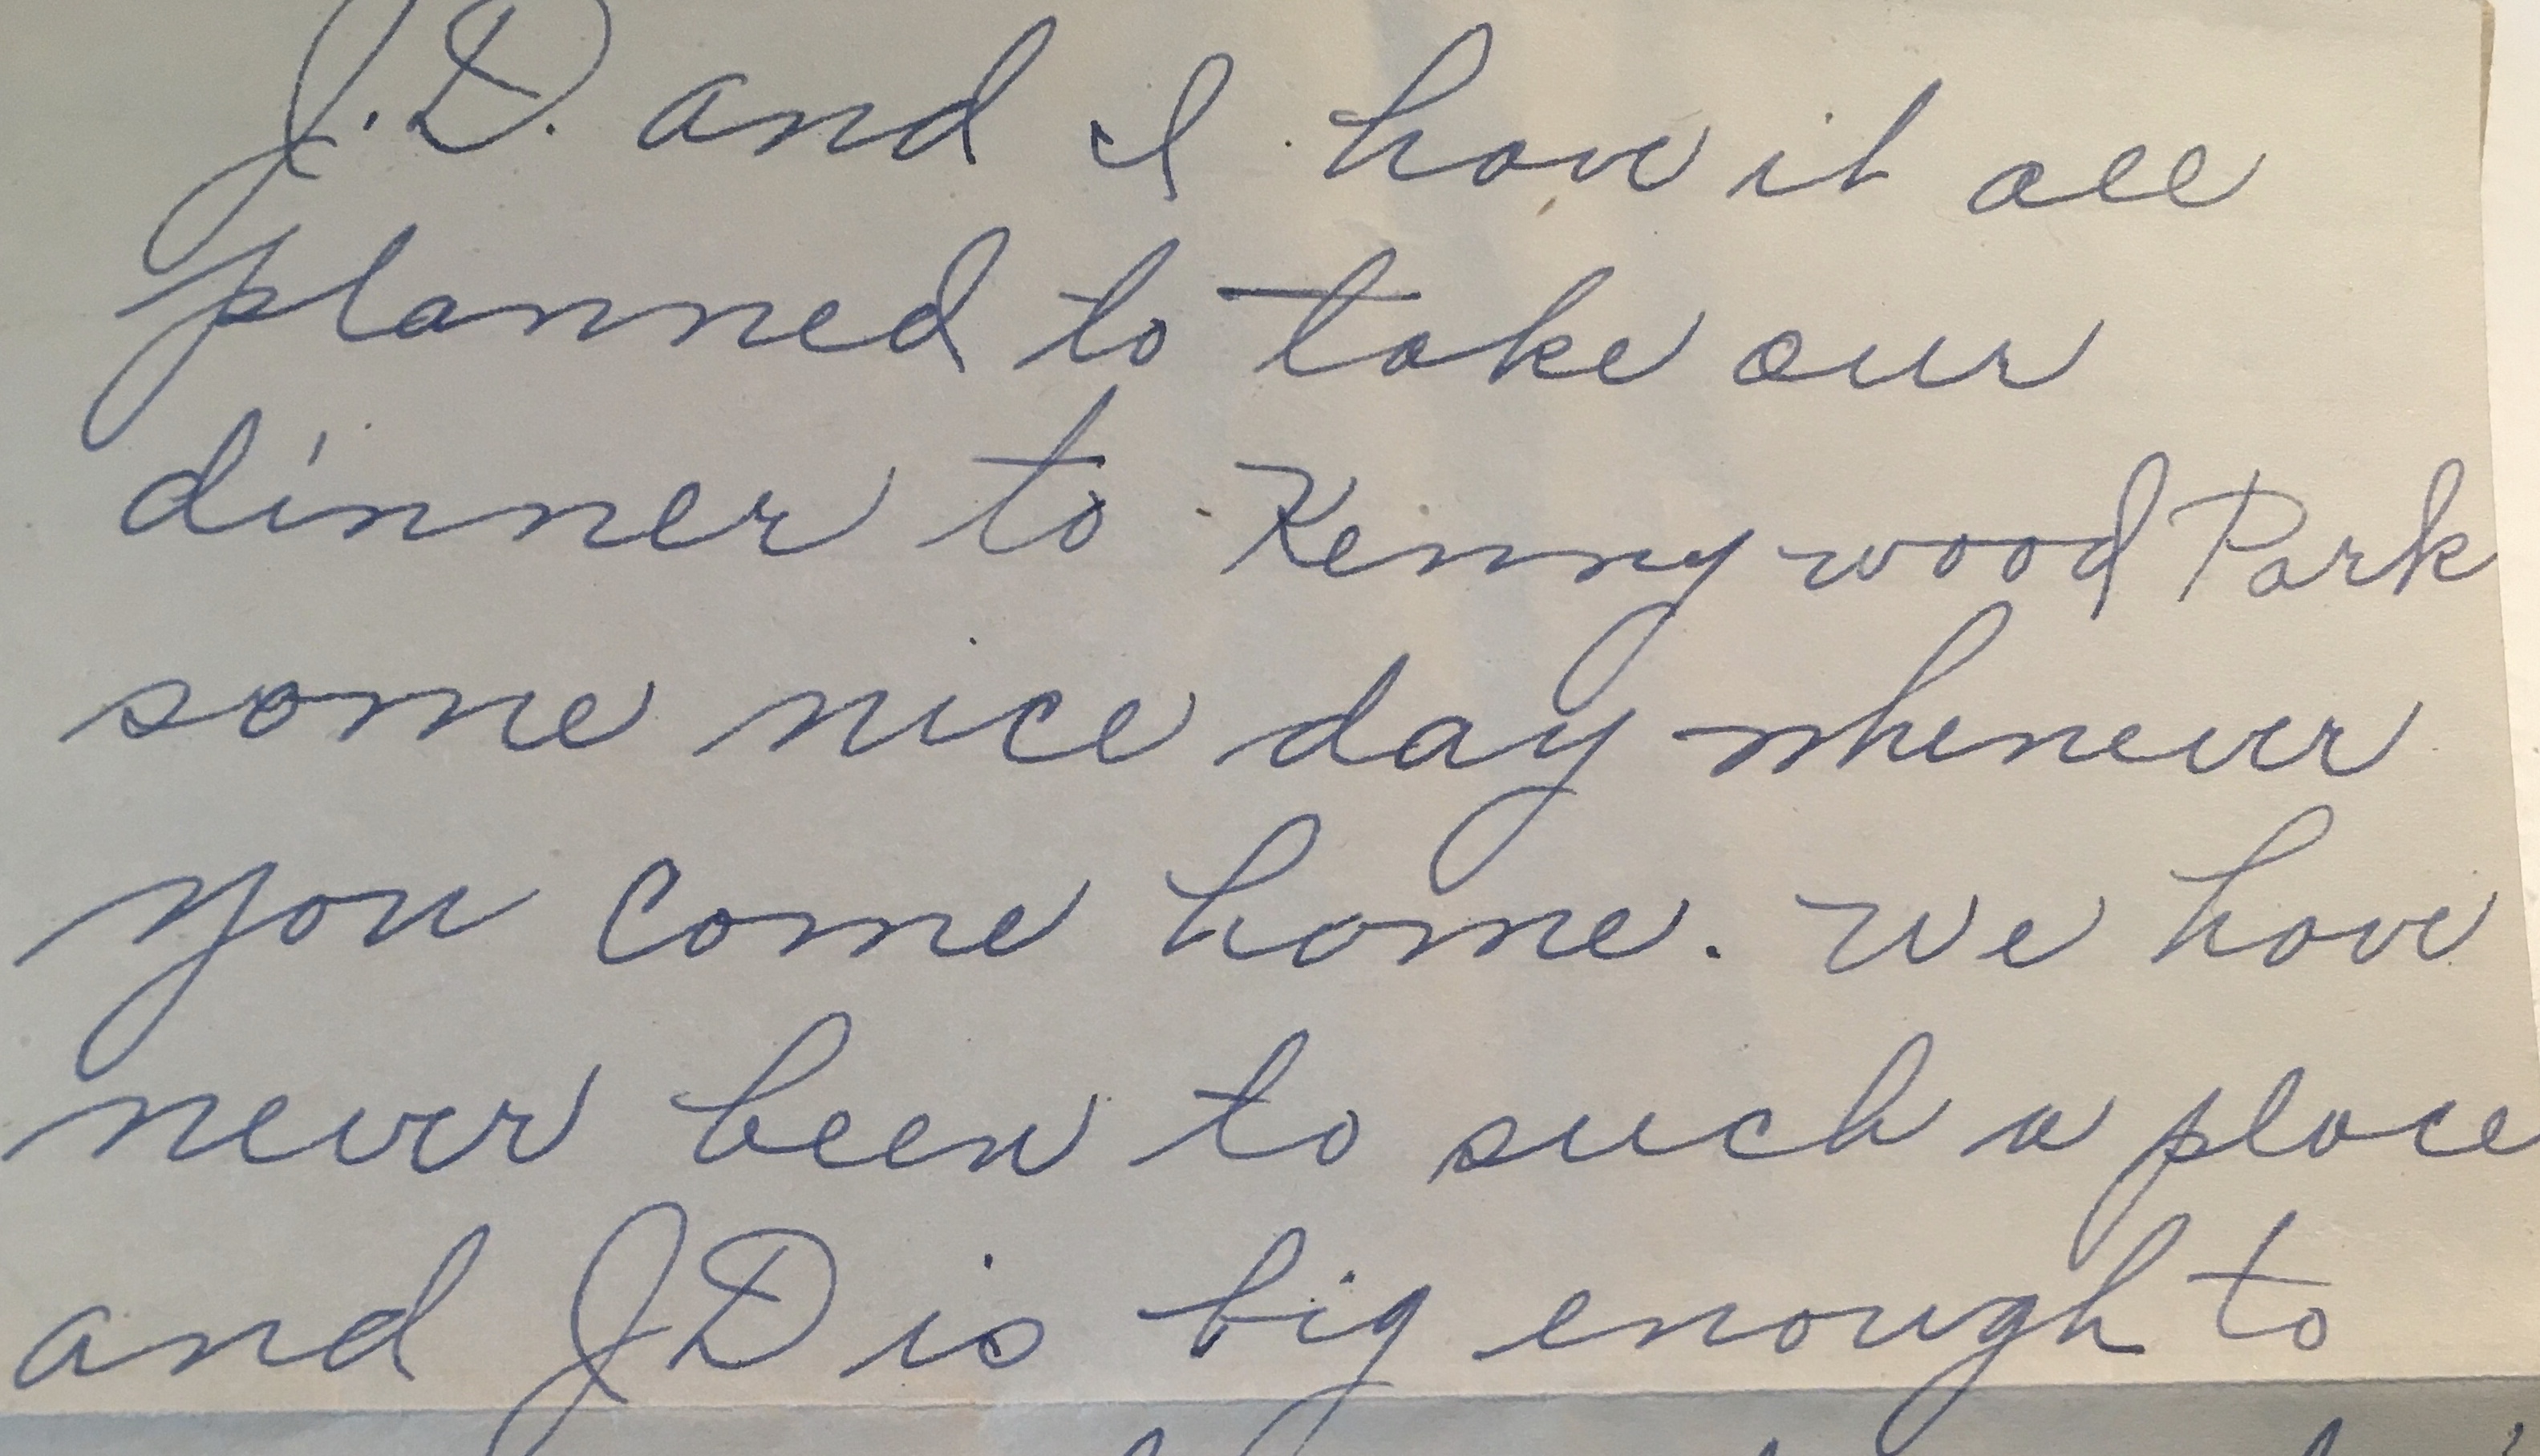 J.D. and I have it all
planned to take our
dinner to Kennywood Park
some nice day whenever
you come home. We have
never been to such a place
and JD is big enough to